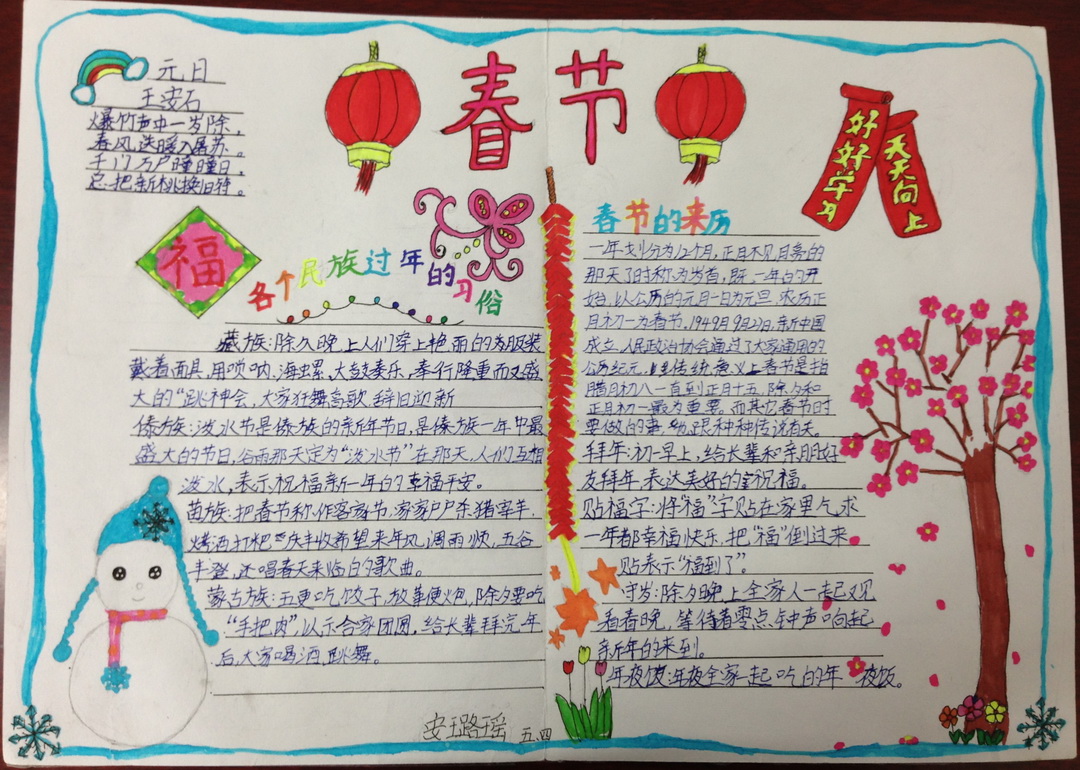 春节
元日
王安石
爆竹声中一岁除，
春风送暖入屠苏。
千门万户曈曈日，
总把新桃换旧符。
福
好好学习
天天向上
各个民族过年的习俗
藏族：除夕晚上人们穿上艳丽的服装
戴着面具，用唢呐、海螺、大鼓奏乐，奉行隆重而又盛
大的“跳神会，大家狂舞高歌 辞旧迎新
傣族：泼水节是傣族的新年节日，是傣族一年中最
盛大的节日，谷雨那天定为“泼水节”在那天，人们互相
泼水，表示祝福新一年的幸福平安。
苗族：把春节称作客家节，家家户户杀猪宰羊，
烤酒打粑 庆丰收希望来年风调雨顺，五谷
丰登，还唱春天来临的歌曲。
蒙古族：五更吃饺子，放鞭炮，除夕要吃
“手把肉”，以示合家团圆，给长辈拜完年
后，大家喝酒、跳舞。
春节的来历
一年划分为12个月，正月不见月亮的
那天 时称为岁首，既一年的开
始，以公历的元月一日为元旦 农历正
月初一为春节。1949月9月27日，新中国
成立，人民政治协会通过了大家通用的
公历纪元， 传统意义上春节是指
腊月初八一直到正月十五，除夕和
正月初一最为重要。而其它春节时
要做的事 跟种种传说有关。
拜年：初一早上，给长辈和亲朋好
友拜年，表达美好的祝福。
贴福字：将“福”字贴在家里气求
一年都幸福快乐，把“福”倒过来
贴表示“福到了”。
守岁：除夕晚上全家人一起观
看春晚，等待着零点钟声响起
新年的来到。
年夜饭：年夜全家一起吃的年 夜饭。
安王路瑶 五.四